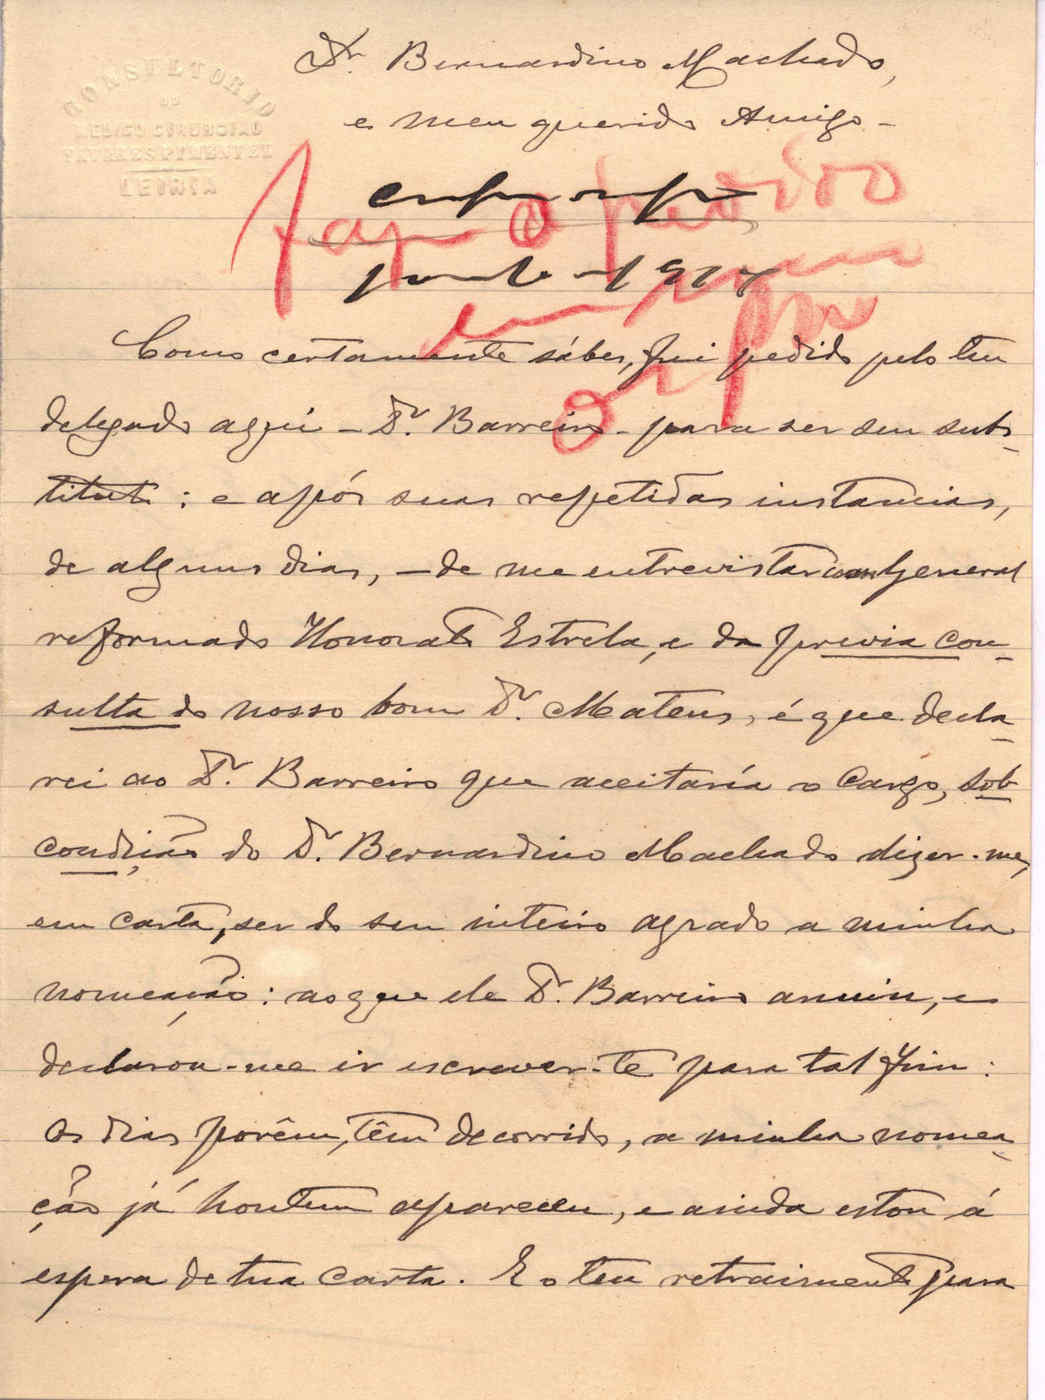 CONSULTORIO
DO
MEDICO CIRURGIÃO
TAVARES PIMENTEL
LEIRIA
Dr. Bernardino Machado,
e meu querido Amigo –
Como certamente sábes, fui pedido pelo teu
delegado aqui – Dr. Barreiro – para ser seu subs-
tituto: e após suas repetidas instancias,
de alguns dias, – de me entrevistar com General
reformado Honorato Estrela, e da previa con-
sulta do nosso bom Dr. Mateus, é que decla-
rei ao Dr. Barreiro que aceitaría o cargo, sob
condição do Dr. Bernardino Machado dizer-me,
em carta, ser do seu inteiro agrado a minha
nomeação: ao que ele Dr. Barreiro anuiu, e
declarou-me ir escrever-te para tal fim:
Os dias porêm, têm decorrido, a minha nomea-
ção já hontem apareceu, e ainda estou á
espera de tua carta. E o teu retraimento para